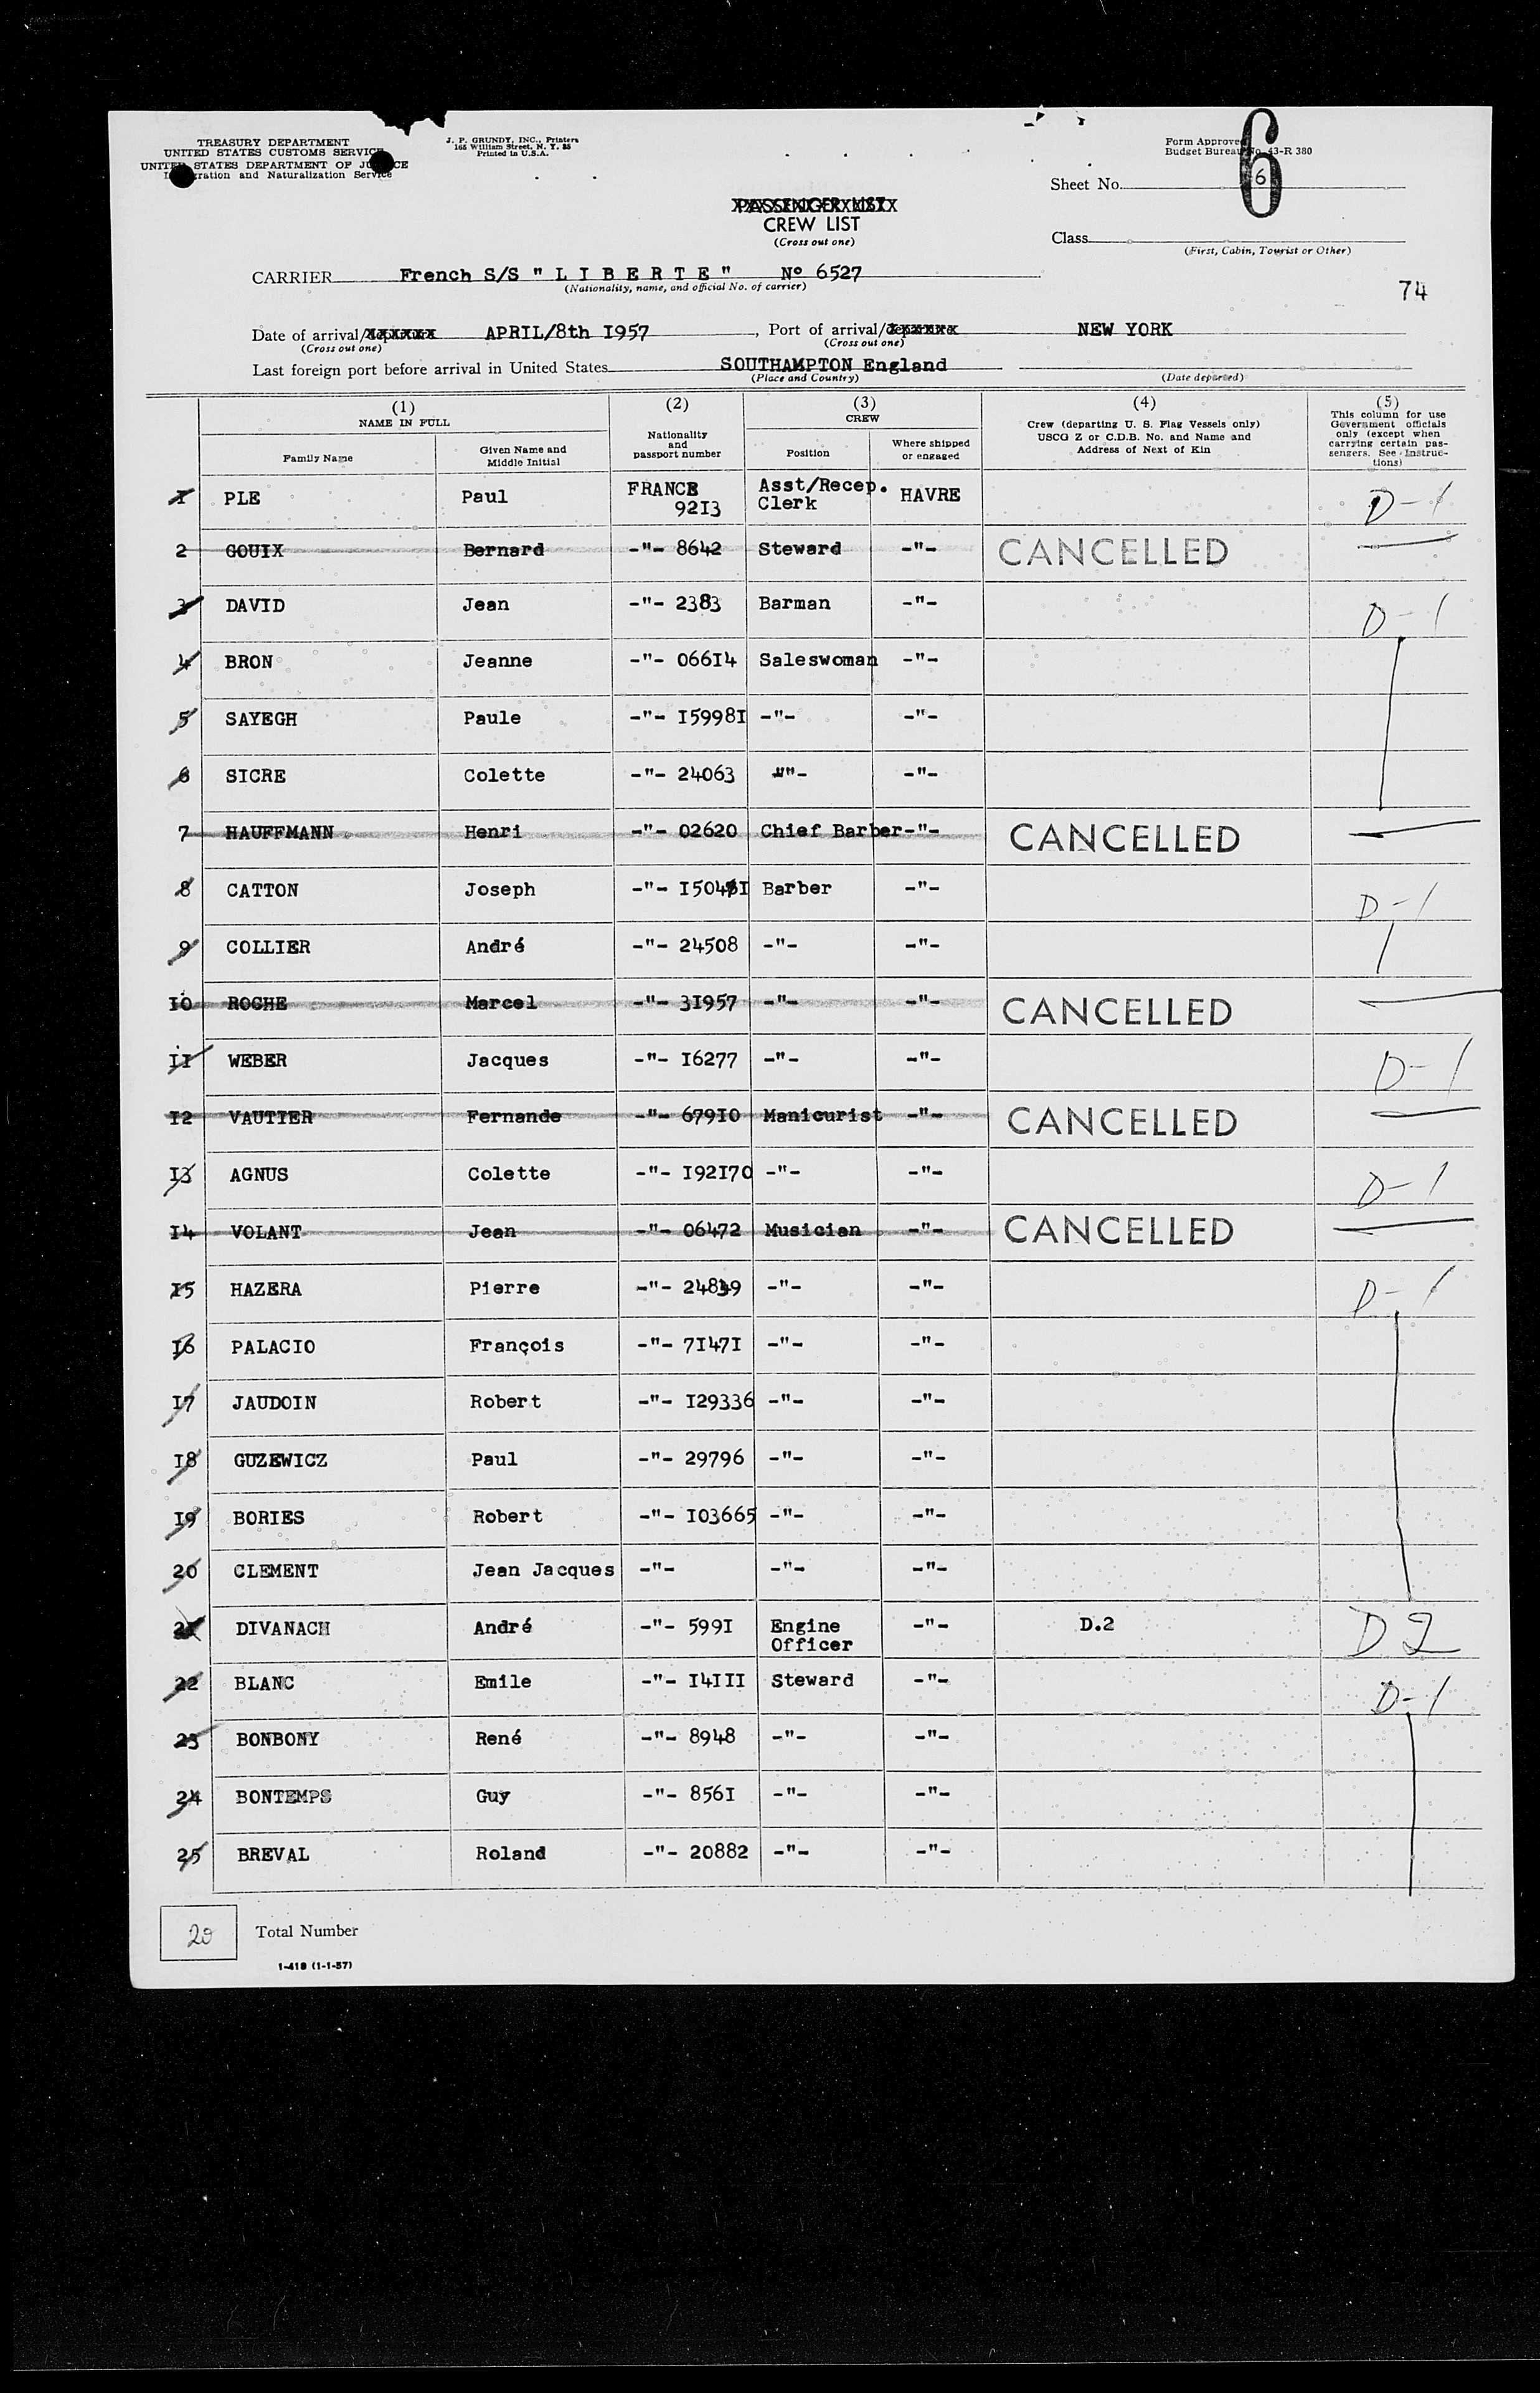 TREASURY DEPARTMENT
UNITED STATES CUSTOMS SERVICE
UNITED STATES DEPARTMENT OF JUSTICE
Immigration and Naturalization Service
J. P. GRUNDY, INC., Printers
165 William Street, N. Y. 38
Printed in U.S.A.
Form Approved
Budget Bureau No. 43-R 380
6
Sheet No. 6
PASSENGER LIST
CREW LIST
(Cross out one)
Class
(First, Cabin, Tourist or Other)
CARRIER French S/S " L I B E R T E " No 6527
(Nationality, name, and official No. of carrier)
74
Date of arrival/departure APRIL/8th I957, Port of arrival/departure NEW YORK
(Cross out one) (Cross out one)
Last foreign port before arrival in United States SOUTHAMPTON England
(Place and Country) (Date departed)
(1) NAME IN FULL (2) Nationality and passport number (3) CREW (4) Crew (departing U. S. Flag Vessels only) USCG Z or C.D.B. No. and Name and Address of Next of Kin (5) This column for use Government officials only (except when carrying certain passengers. See Instructions)
Family Name Given Name and Middle Initial Position Where shipped or engaged
1 PLE Paul FRANCE 92I3 Asst/Recep. Clerk HAVRE D-1
2 GOUIX Bernard -"- 8642 Steward -"- CANCELLED
3 DAVID Jean -"- 2383 Barman -"- D-1
4 BRON Jeanne -"- 066I4 Saleswoman -"-
5 SAYEGH Paule -"- I5998I -"- -"-
6 SICRE Colette -"- 24063 -"- -"-
7 HAUFFMANN Henri -"- 02620 Chief Barber -"- CANCELLED
8 CATTON Joseph -"- Barber -"- D-1
9 COLLIER André -"- 24508 -"- -"-
IO ROCHE Marcel -"- 3I957 -"- -"- CANCELLED
II WEBER Jacques -"- I6277 -"- -"- D-1
I2 VAUTIER Fernande -"- 679IO Manicurist -"- CANCELLED
I3 AGNUS Colette -"- I92I70 -"- -"- D-1
I4 VOLANT Jean -"- 06472 Musician -"- CANCELLED
I5 HAZERA Pierre -"- -"- -"- D-1
I6 PALACIO François -"- 7I47I -"- -"-
I7 JAUDOIN Robert -"- I29336 -"- -"-
I8 GUZEWICZ Paul -"- 29796 -"- -"-
I9 BORIES Robert -"- I03665 -"- -"-
20 CLEMENT Jean Jacques -"- -"- -"-
2I DIVANACH André -"- 599I Engine Officer -"- D.2 D2
22 BLANC Emile -"- I4III Steward -"- D-1
23 BONBONY René -"- 8948 -"- -"-
24 BONTEMPS Guy -"- 856I -"- -"-
25 BREVAL Roland -"- 20882 -"- -"-
20 Total Number
1-418 (1-1-57)